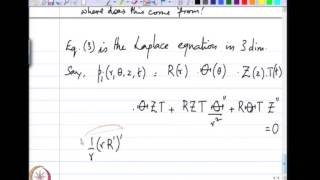 where does this come from?
Eq. (3) is the Laplace equation in 3 dim.
Say, p₁(r, θ, z, t) = R(r) · Θ(θ) · Z(z).T(t)
· Θ Z T + R Z T Θ''/r² + R Θ T Z''
= 0
1/r (r R')'